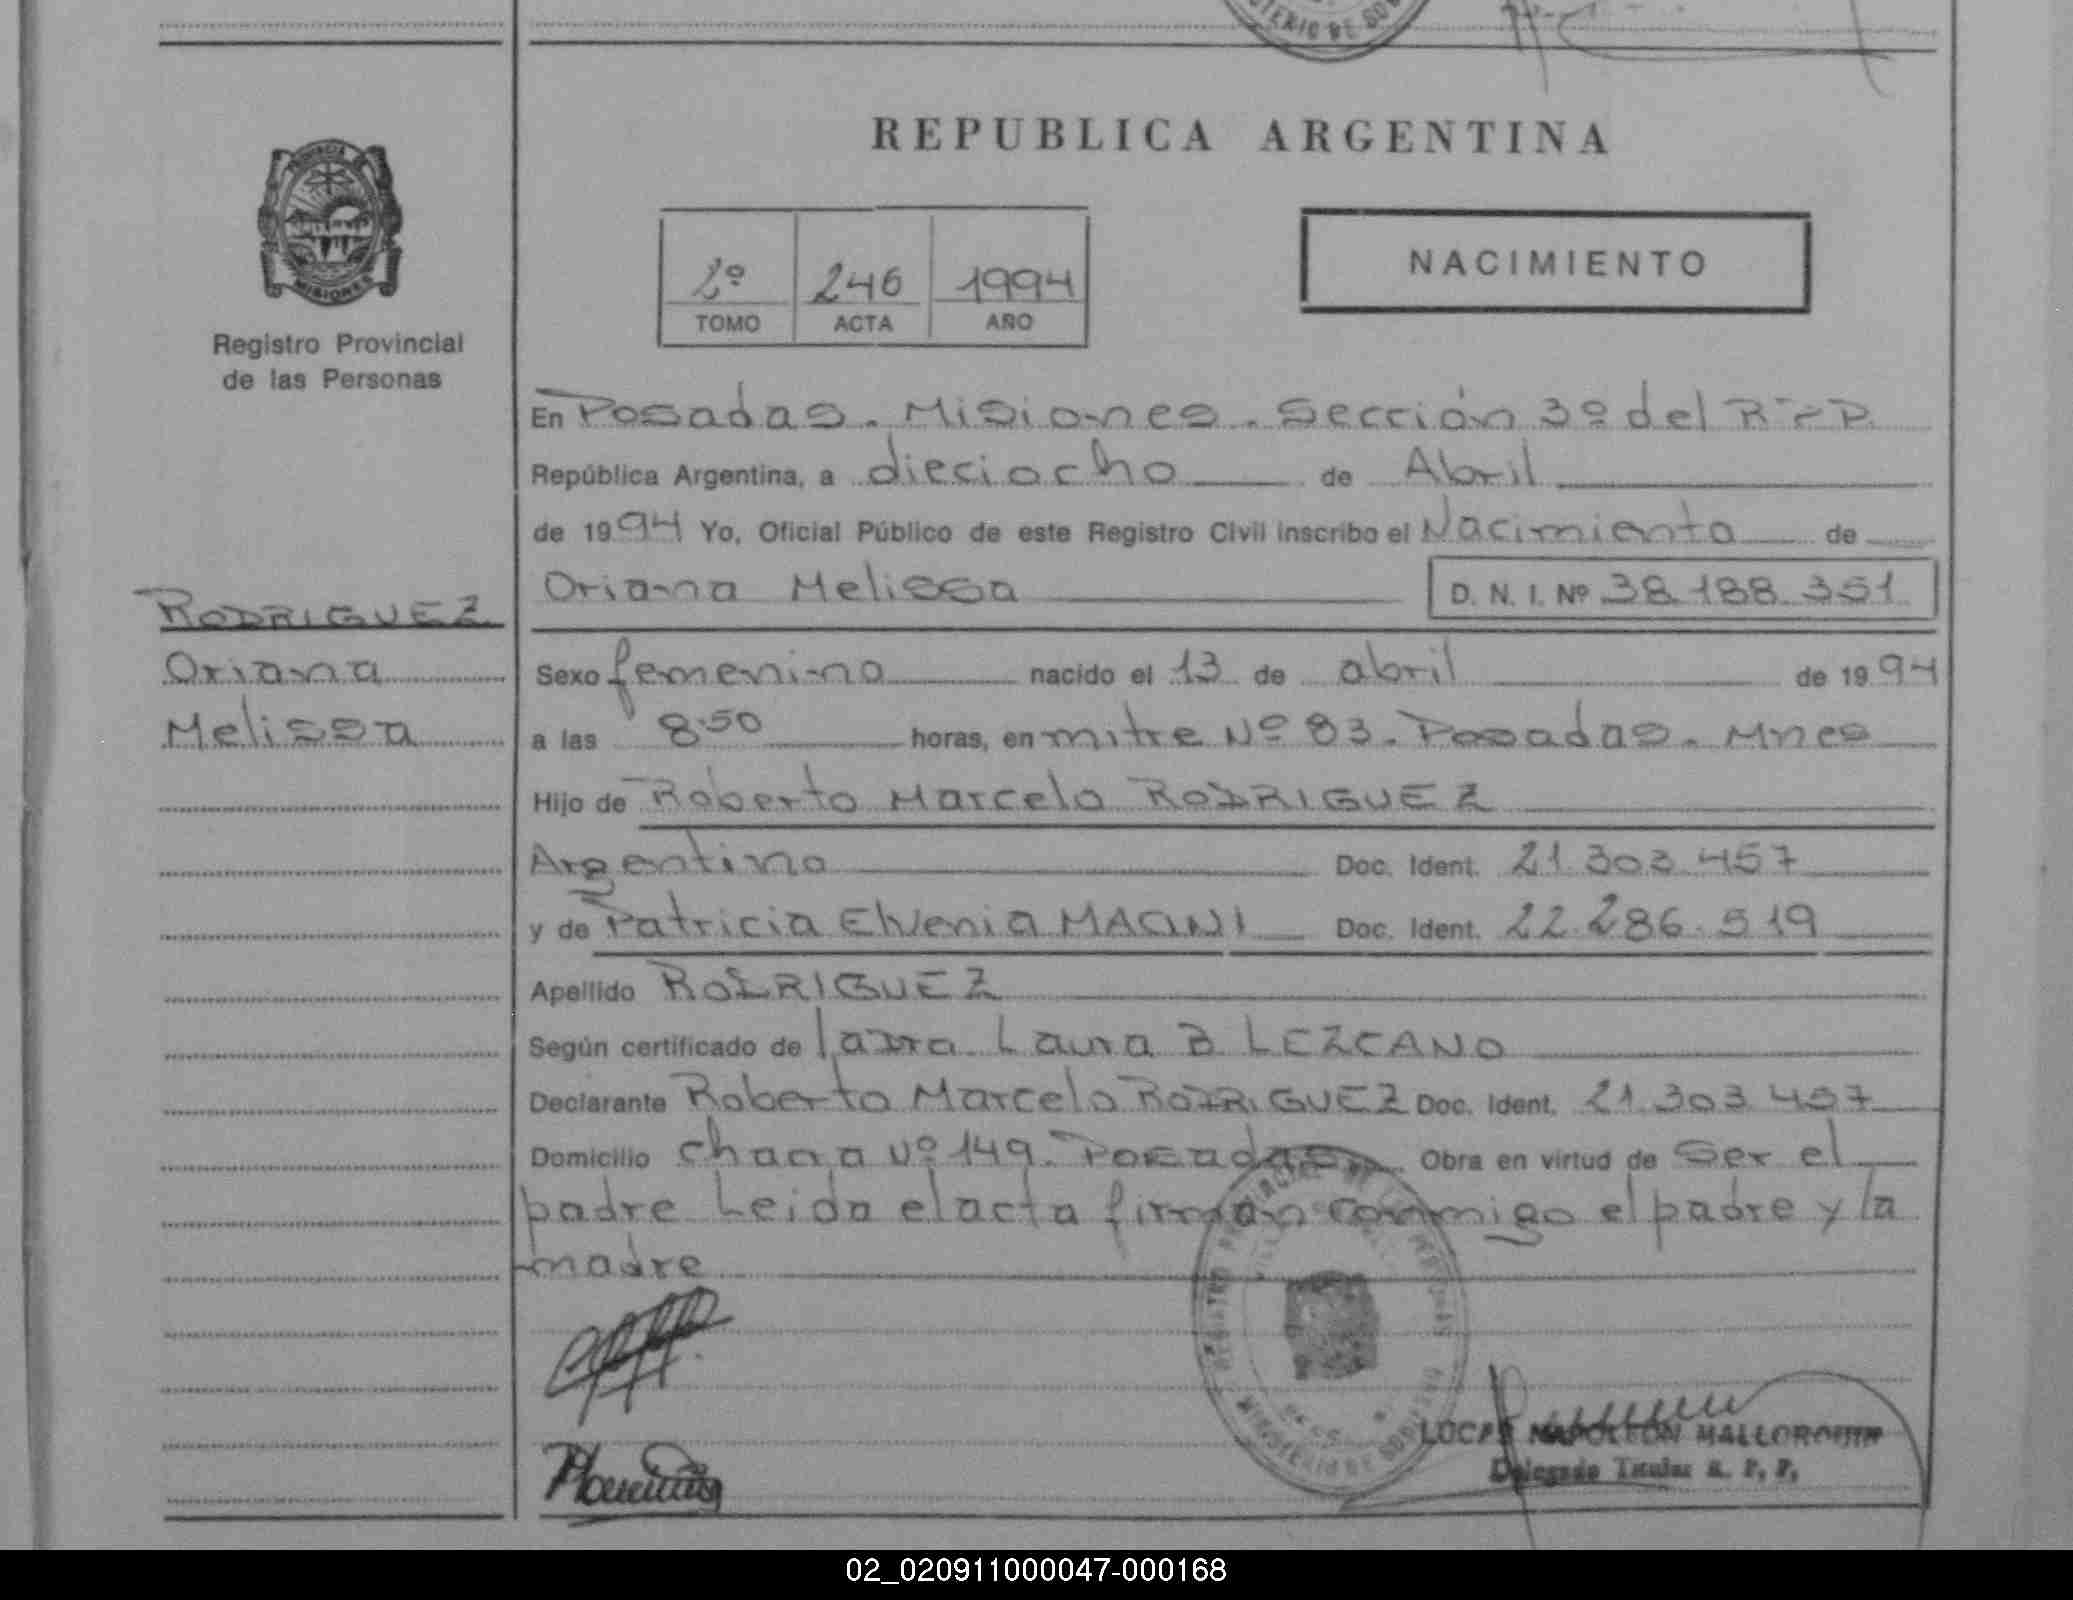 MINISTERIO DE GOB
REPUBLICA ARGENTINA
PROVINCIA DE
MISIONES
Registro Provincial
de las Personas
2º 246 1994
TOMO ACTA AÑO
NACIMIENTO
En Posadas. Misiones. Sección 3º del R.P.P.
República Argentina, a dieciocho de Abril
de 1994 Yo, Oficial Público de este Registro Civil inscribo el Nacimiento de
Oriana Melissa D. N. I. Nº 38.188.351
RODRIGUEZ
Oriana
Melissa
Sexo femenino nacido el 13 de abril de 1994
a las 8:50 horas, en mitre Nº 83. Posadas. Mnes
Hijo de Roberto Marcelo RODRIGUEZ
Argentino Doc. Ident. 21.303.457
y de Patricia Elvenia Doc. Ident. 22.286.519
Apellido RODRIGUEZ
Según certificado de la Dra. Laura B LEZCANO
Declarante Roberto Marcelo RODRIGUEZ Doc. Ident. 21.303.457
Domicilio Chacra Nº 149. Posadas Obra en virtud de Ser el
padre Leida el acta firman conmigo el padre y la
madre
REGISTRO PROVINCIAL DE LAS PERSONAS
MINISTERIO DE GOBIERNO
LUCAS NAPOLEON MALLORQUIN
Delegado Titular R. P. P.
02_020911000047-000168